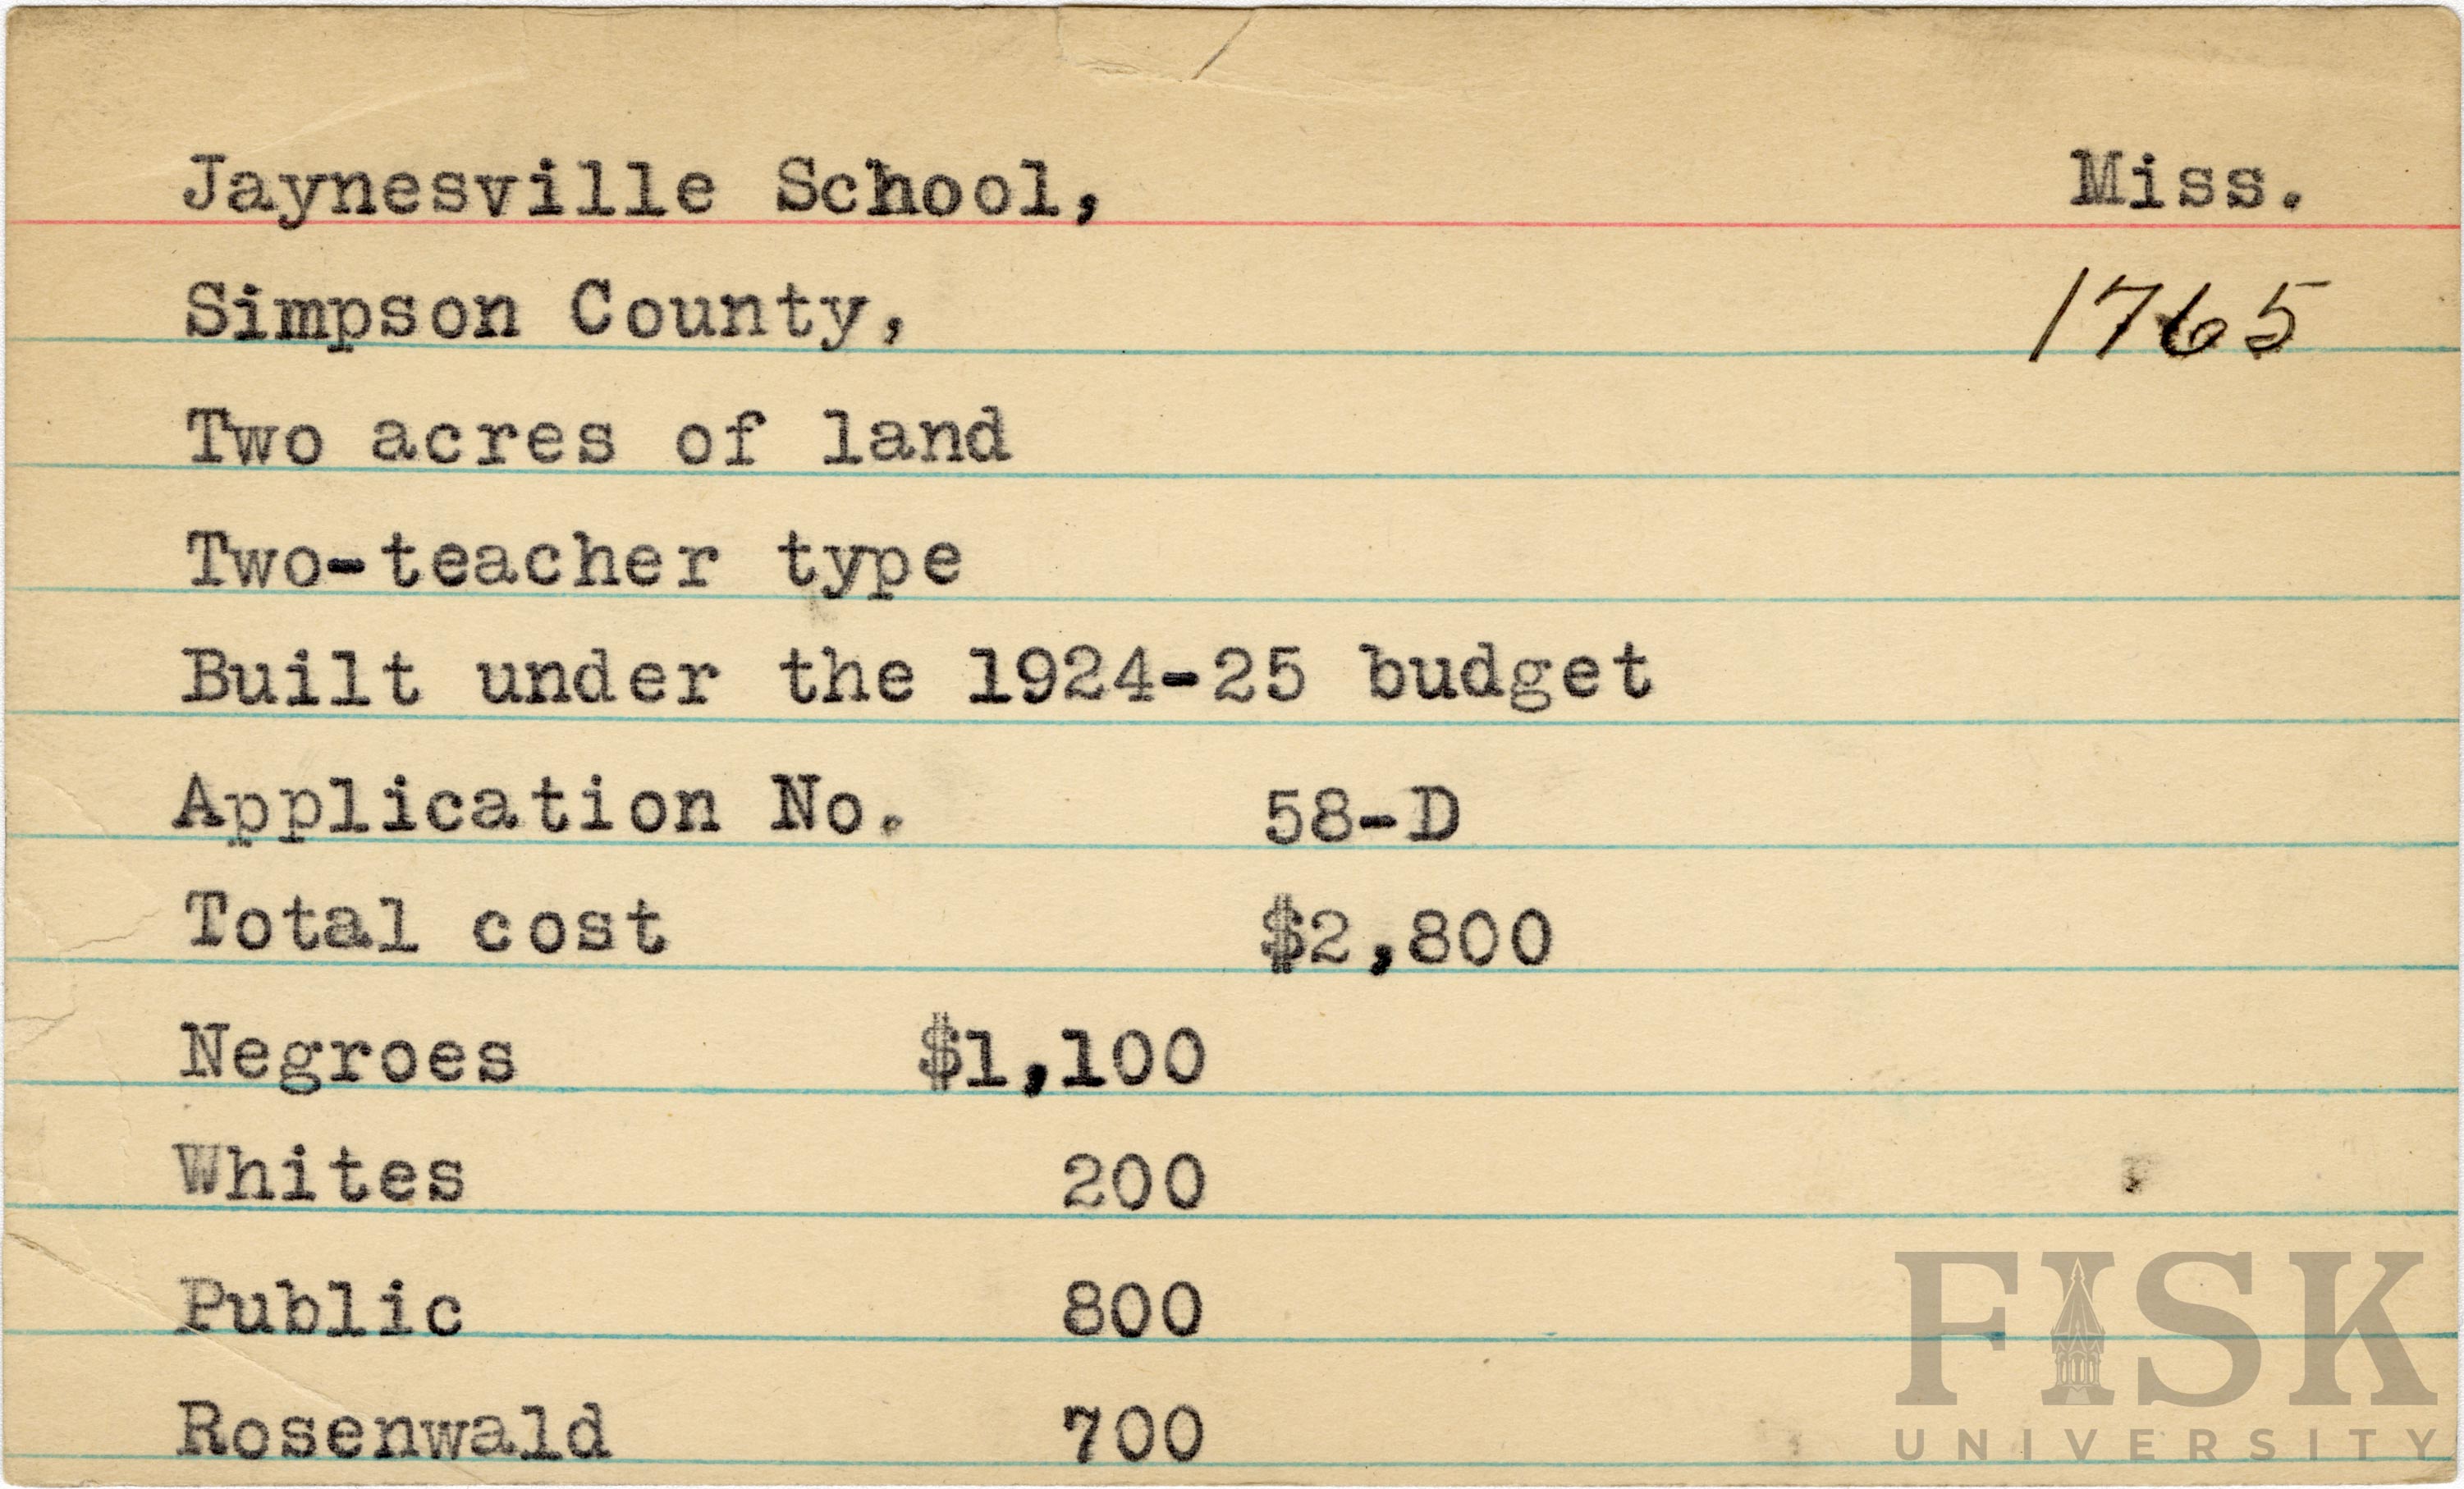 Jaynesville School, Miss.
Simpson County, 1765
Two acres of land
Two-teacher type
Built under the 1924-25 budget
Application No. 58-D
Total cost $2,800
Negroes $1,100
Whites 200
Public 800
Rosenwald 700
FISK
UNIVERSITY